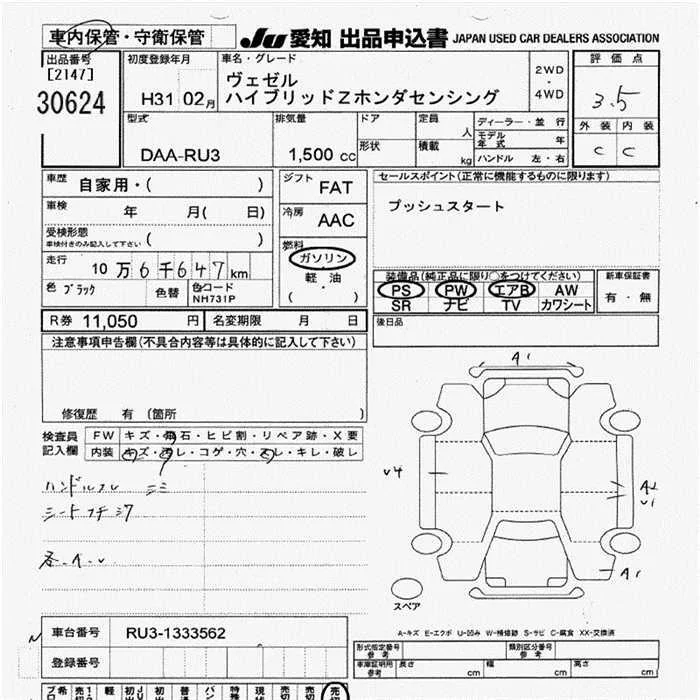 車内保管・守衛保管
JU 愛知 出品申込書 JAPAN USED CAR DEALERS ASSOCIATION
出品番号
[2147]
30624
初度登録年月
H31 02月
車名・グレード
ヴェゼル
ハイブリッドZホンダセンシング
2WD
・
4WD
評価点
3.5
外装 内装
C C
型式
DAA-RU3
排気量
1,500 cc
ドア
形状
定員 人
積載 kg
ディーラー・並行
モデル年式 年
ハンドル 左・右
車歴 自家用・( )
車検 年 月( 日)
受検形態
車検付きのみ記入して下さい ( )
走行 10万6千647km
色 ブラック
色替
色コード
NH731P
シフト FAT
冷房 AAC
燃料
ガソリン
・
軽・油
( )
セールスポイント(正常に機能するものに限ります)
プッシュスタート
装備品(純正品に限り○をつけてください)
PS PW エアB AW
SR ナビ TV カワシート
新車保証書
有・無
R券 11,050 円
名変期限 月 日
後日品
注意事項申告欄(不具合内容等は具体的に記入して下さい)
修復歴 有 (箇所 )
検査員
記入欄
FW キズ・飛石・ヒビ割・リペア跡・X要
内装 キズ・汚レ・コゲ・穴・スレ・キレ・破レ
ハンドルスレ
A1
V4
A2
V1
A1
スペア
A-キズ E-エクボ U-凹み W-補修跡 S-サビ C-腐食 XX-交換済
車台番号 RU3-1333562
登録番号
型式指定番号
参考
類別区分番号
参考
車庫証明用
参考
長さ cm 幅 cm 高さ cm